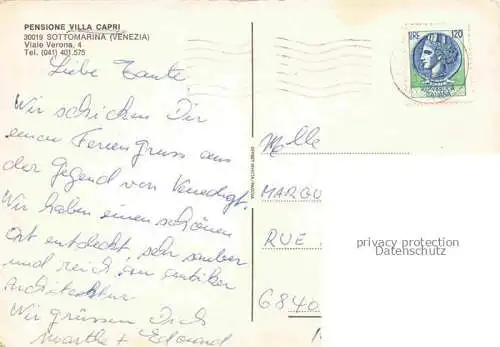 PENSIONE VILLA CAPRI
30019 SOTTOMARINA (VENEZIA)
Viale Verona, 4
Tel. (041) 401.575
Liebe Tante,
Wir schicken Dir
einen Feriengruss aus
der Gegend von Venedig.
Wir haben einen schönen
Ort entdeckt, sehr sauber
und reich an antiker
Architektur
Wir grüssen Dich
Marthe + Edouard
LIRE 120
Mlle
MARGU
RUE
6840
privacy protection
Datenschutz